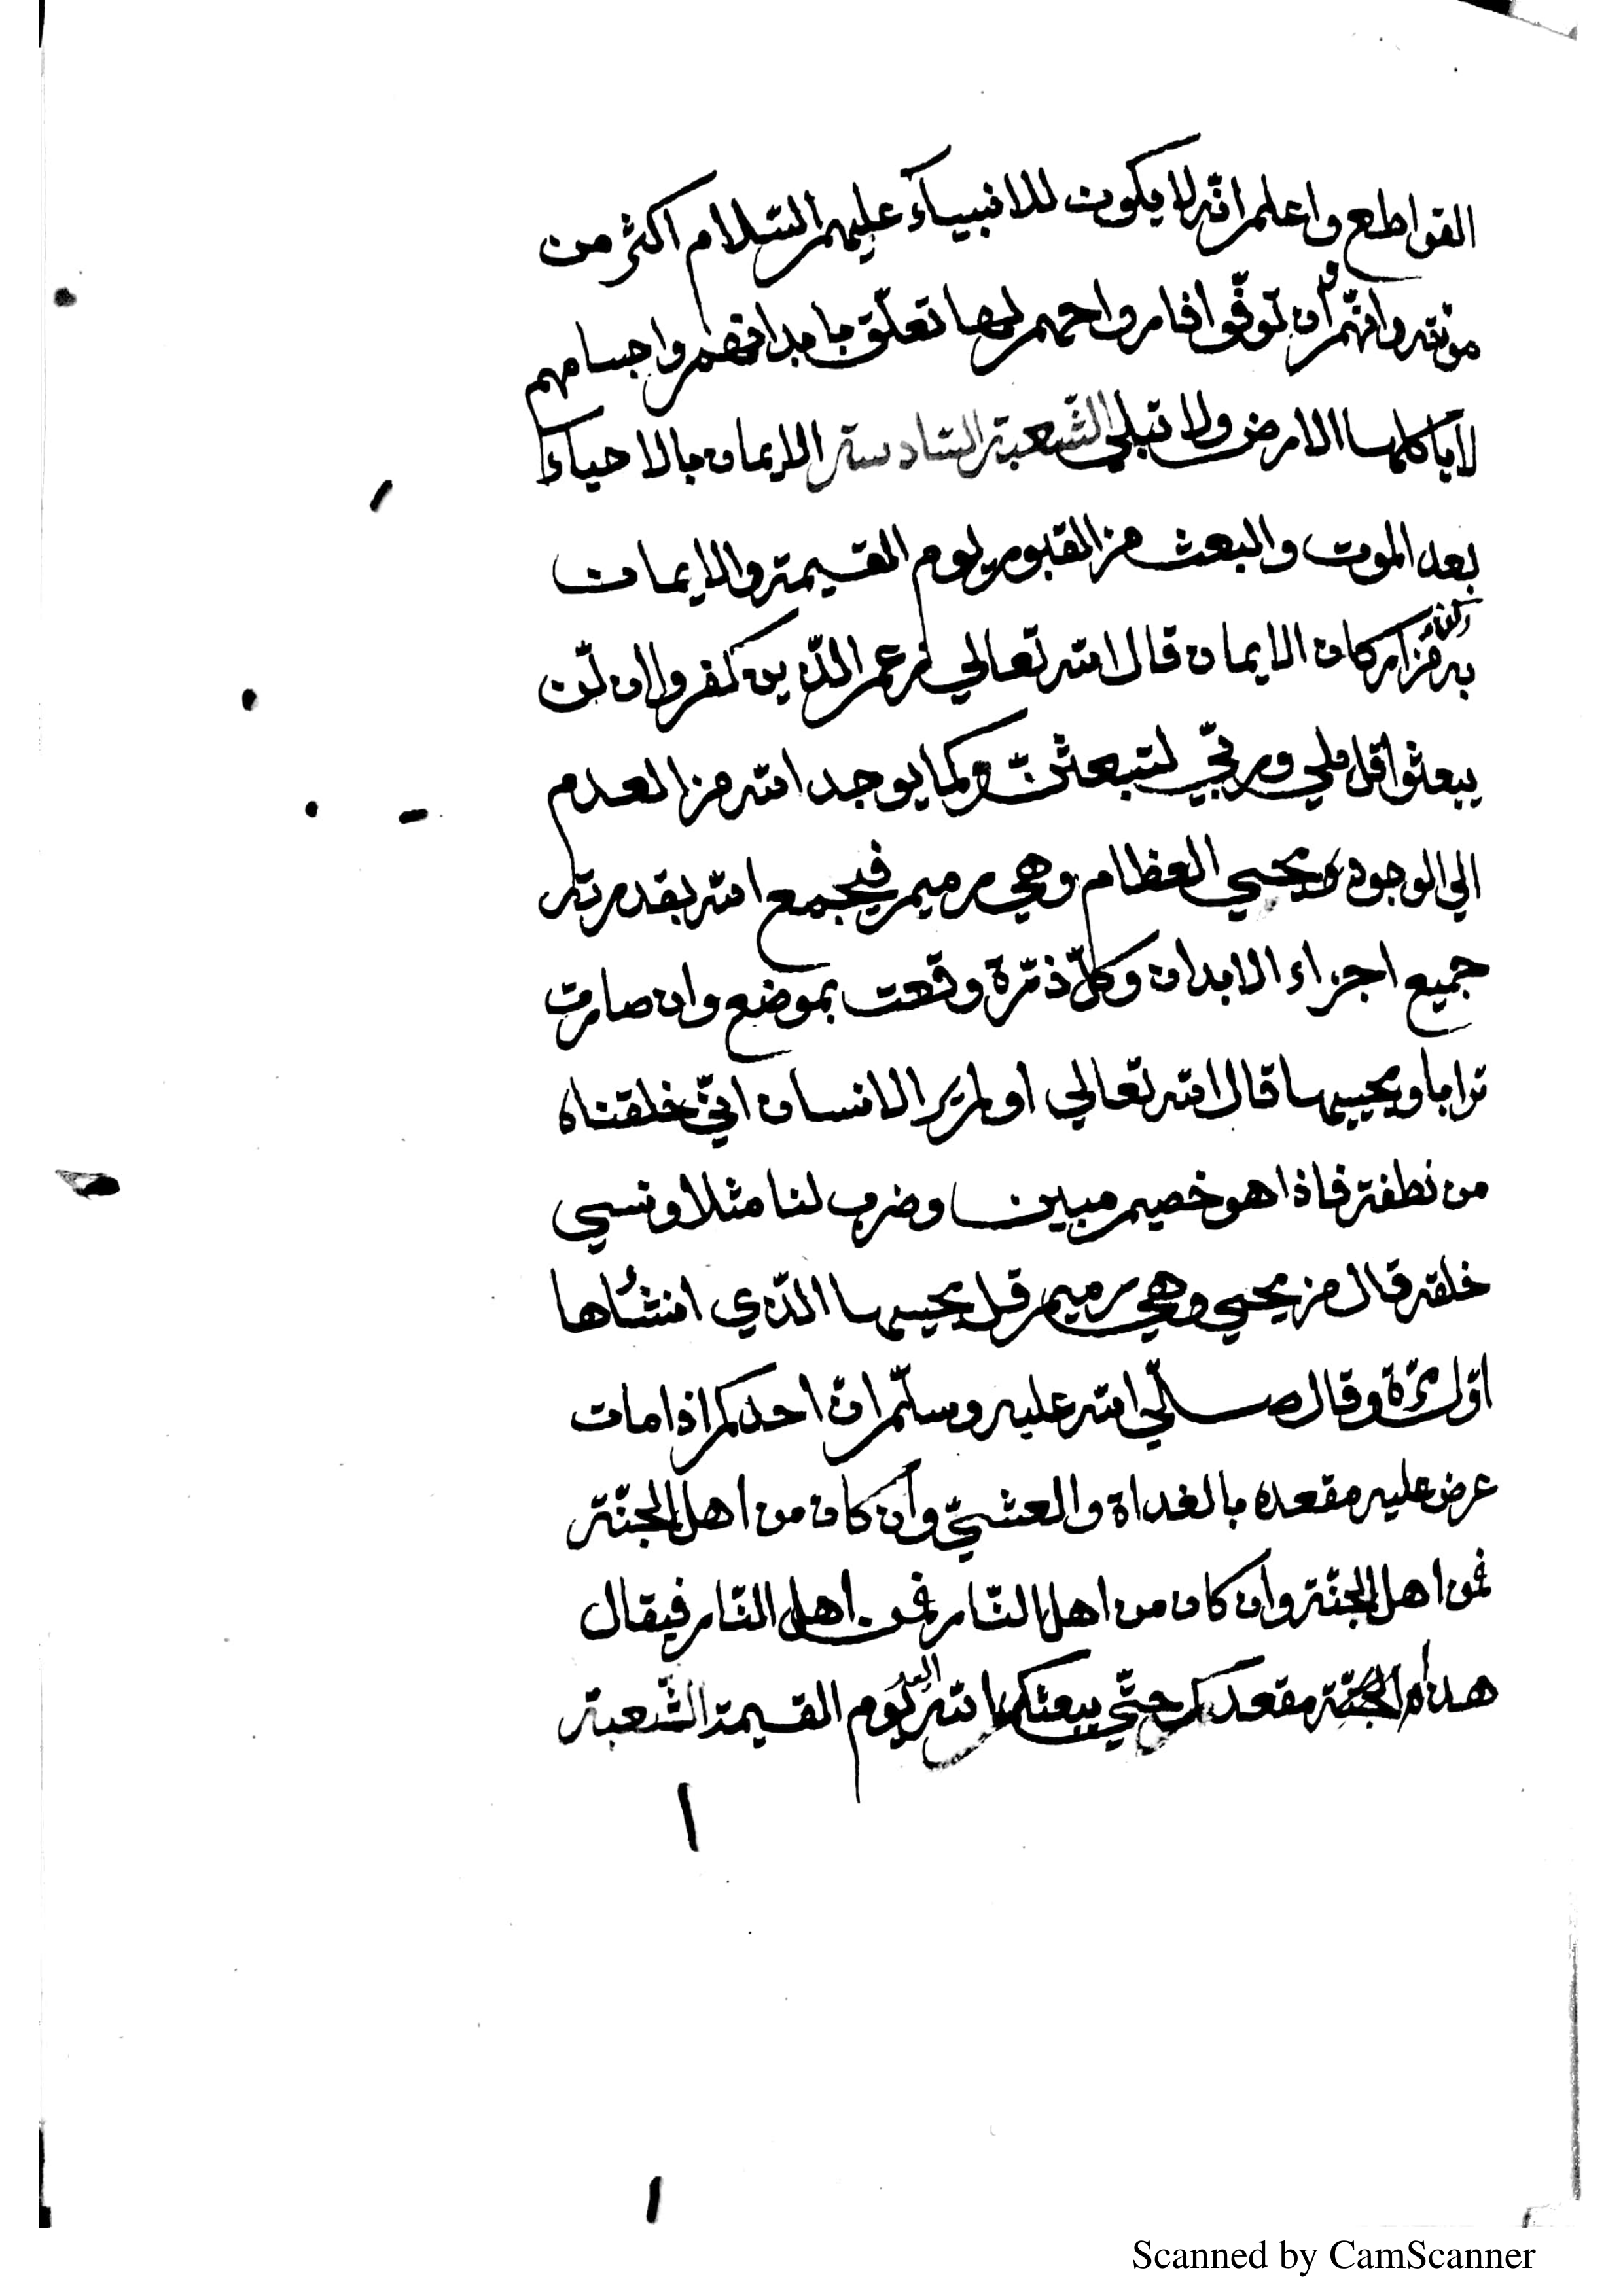 القواطع واعلم انّه لا يكون للانبيآء عليهم السّلام اكثر من
موته وانّهم وان توفّوا فارواحهم لها تعلّق بابدانهم واجسامهم
لا ياكلها الارض ولا تبلى الشّعبة السّادسة الايمان بالاحياء
بعد الموت والبعث من القبور يوم القيمة والايمان
به ركن من اركان الايمان قال الله تعالي زعم الّذين كفروا ان لّن
يبعثوا قل بلي وربّي لتبعثنّ وكما يوجد الله من العدم
الي الوجود يحيي العظام وهي رميم فيجمع الله بقدرته
جميع اجزاء الابدان وكلّ ذرّة وقعت بموضع وان صارت
ترابا ويحييها قال الله تعالي اولم ير الانسان انّي خلقناه
من نطفة فاذا هو خصيم مبين وضرب لنا مثلا ونسي
خلقه قال من يحيي وهي رميم قل يحييها الّذي انشأها
اوّل مرّة وقال صلّي الله عليه وسلّم انّ احدكم اذا مات
عرض عليه مقعده بالغداة والعشيّ وان كان من اهل الجنّة
فمن اهل الجنّة وان كان من اهل النّار فمن اهل النّار فيقال
هذا مقعدك حتّي يبعثك الله اليه يوم القيمة الشّعبة
Scanned by CamScanner